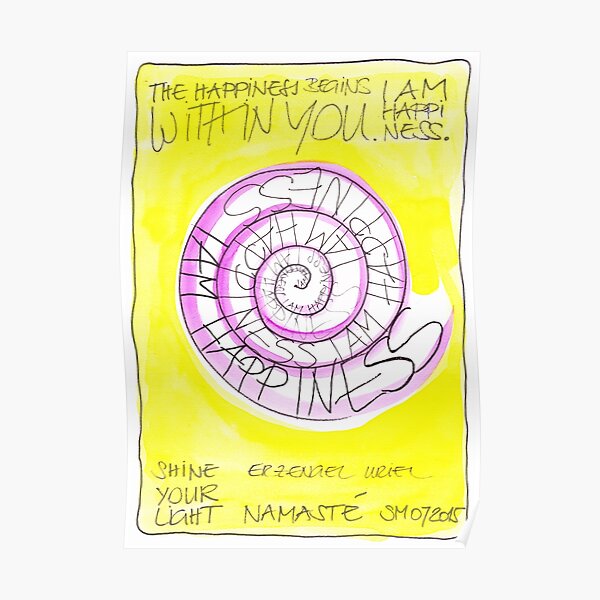 THE HAPPINESS BEGINS
WITHIN YOU.
I AM
HAPPI
NESS.
I AM HAPPINESS I AM HAPPINESS I AM HAPPINESS
SHINE
YOUR
LIGHT
ERZENGEL URIEL
NAMASTÉ SM072015